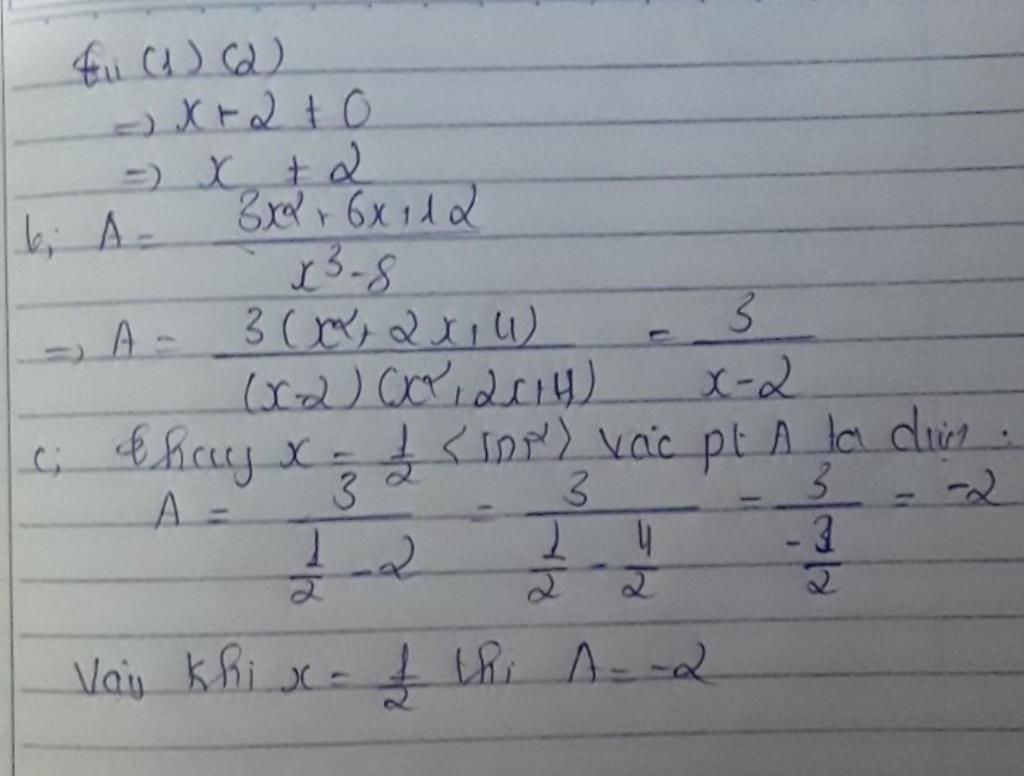 từ (1) (2)
=> x + 2 ≠ 0
=> x ≠ 2
b; A = (3x² + 6x + 12) / (x³ - 8)
=> A = 3(x² + 2x + 4) / ((x-2)(x² + 2x + 4)) = 3 / (x - 2)
c; thay x = 1/2 vào pt A ta được:
A = 3 / (1/2 - 2) = 3 / (1/2 - 4/2) = 3 / (-3/2) = -2
Vậy khi x = 1/2 thì A = -2